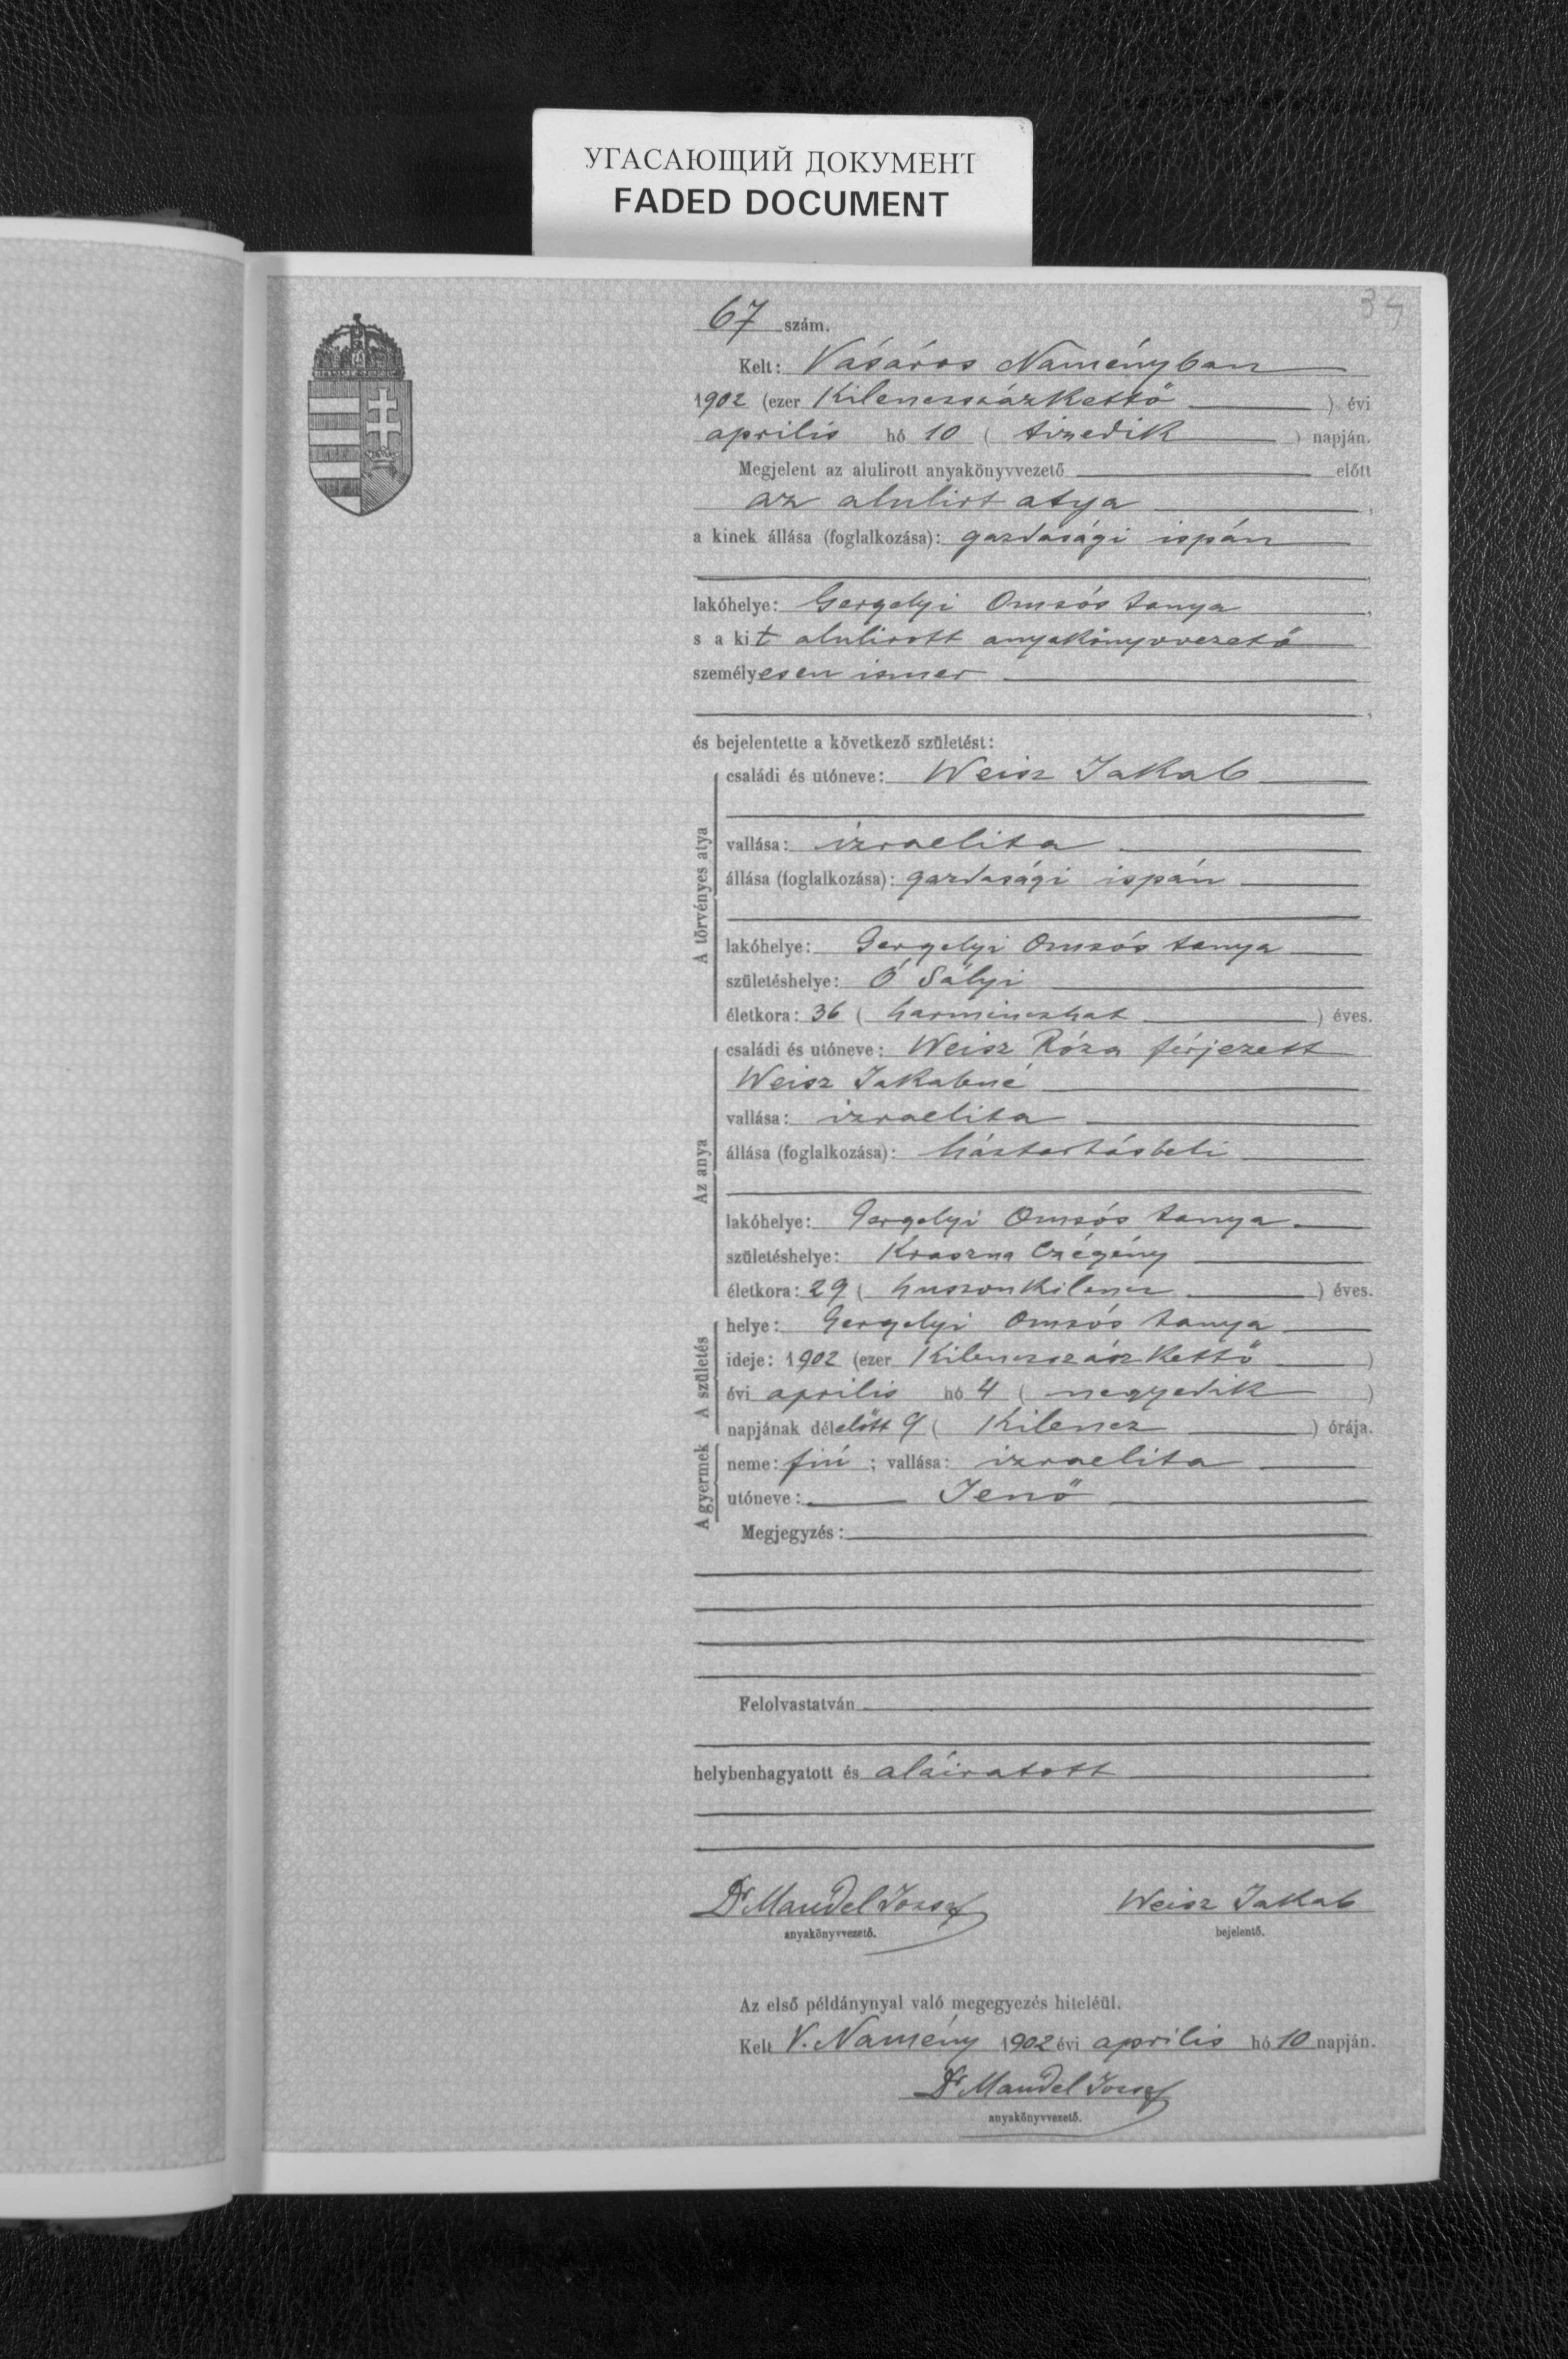 УГАСАЮЩИЙ ДОКУМЕНТ
FADED DOCUMENT
67 szám.
Kelt: Vásáros Naményban
1902 (ezer Kilenczszázkettő ) évi
aprilis hó 10 ( tizedik ) napján.
Megjelent az alulirott anyakönyvvezető előtt
az alulirt atya ,
a kinek állása (foglalkozása): gazdasági ispán
lakóhelye: Gergelyi Omsós tanya ,
s a kit alulirott anyakönyvvezető
személyesen ismer
,
és bejelentette a következő születést:
A törvényes atya
családi és utóneve: Weisz Jakab
vallása: izraelita
állása (foglalkozása): gazdasági ispán
lakóhelye: Gergelyi Omsós tanya
születéshelye: Ó Sályi
életkora: 36 ( harminczhat ) éves.
Az anya
családi és utóneve: Weisz Róza férjezett
Weisz Jakabné
vallása: izraelita
állása (foglalkozása): háztartásbeli
lakóhelye: Gergelyi Omsós tanya
születéshelye: Kraszna Czégény
életkora: 29 ( huszonkilencz ) éves.
A születés
helye: Gergelyi Omsós tanya
ideje: 1902 (ezer Kilenczszázkettő )
évi aprilis hó 4 ( negyedik )
napjának délelőtt 9 ( Kilencz ) órája.
A gyermek
neme: fiú ; vallása: izraelita
utóneve: Jenő
Megjegyzés:
Felolvastatván
helybenhagyatott és aláiratott
Dr Mandel József Weisz Jakab
anyakönyvvezető. bejelentő.
Az első példánynyal való megegyezés hiteléül.
Kelt V. Namény 1902 évi aprilis hó 10 napján.
Dr Mandel József
anyakönyvvezető.